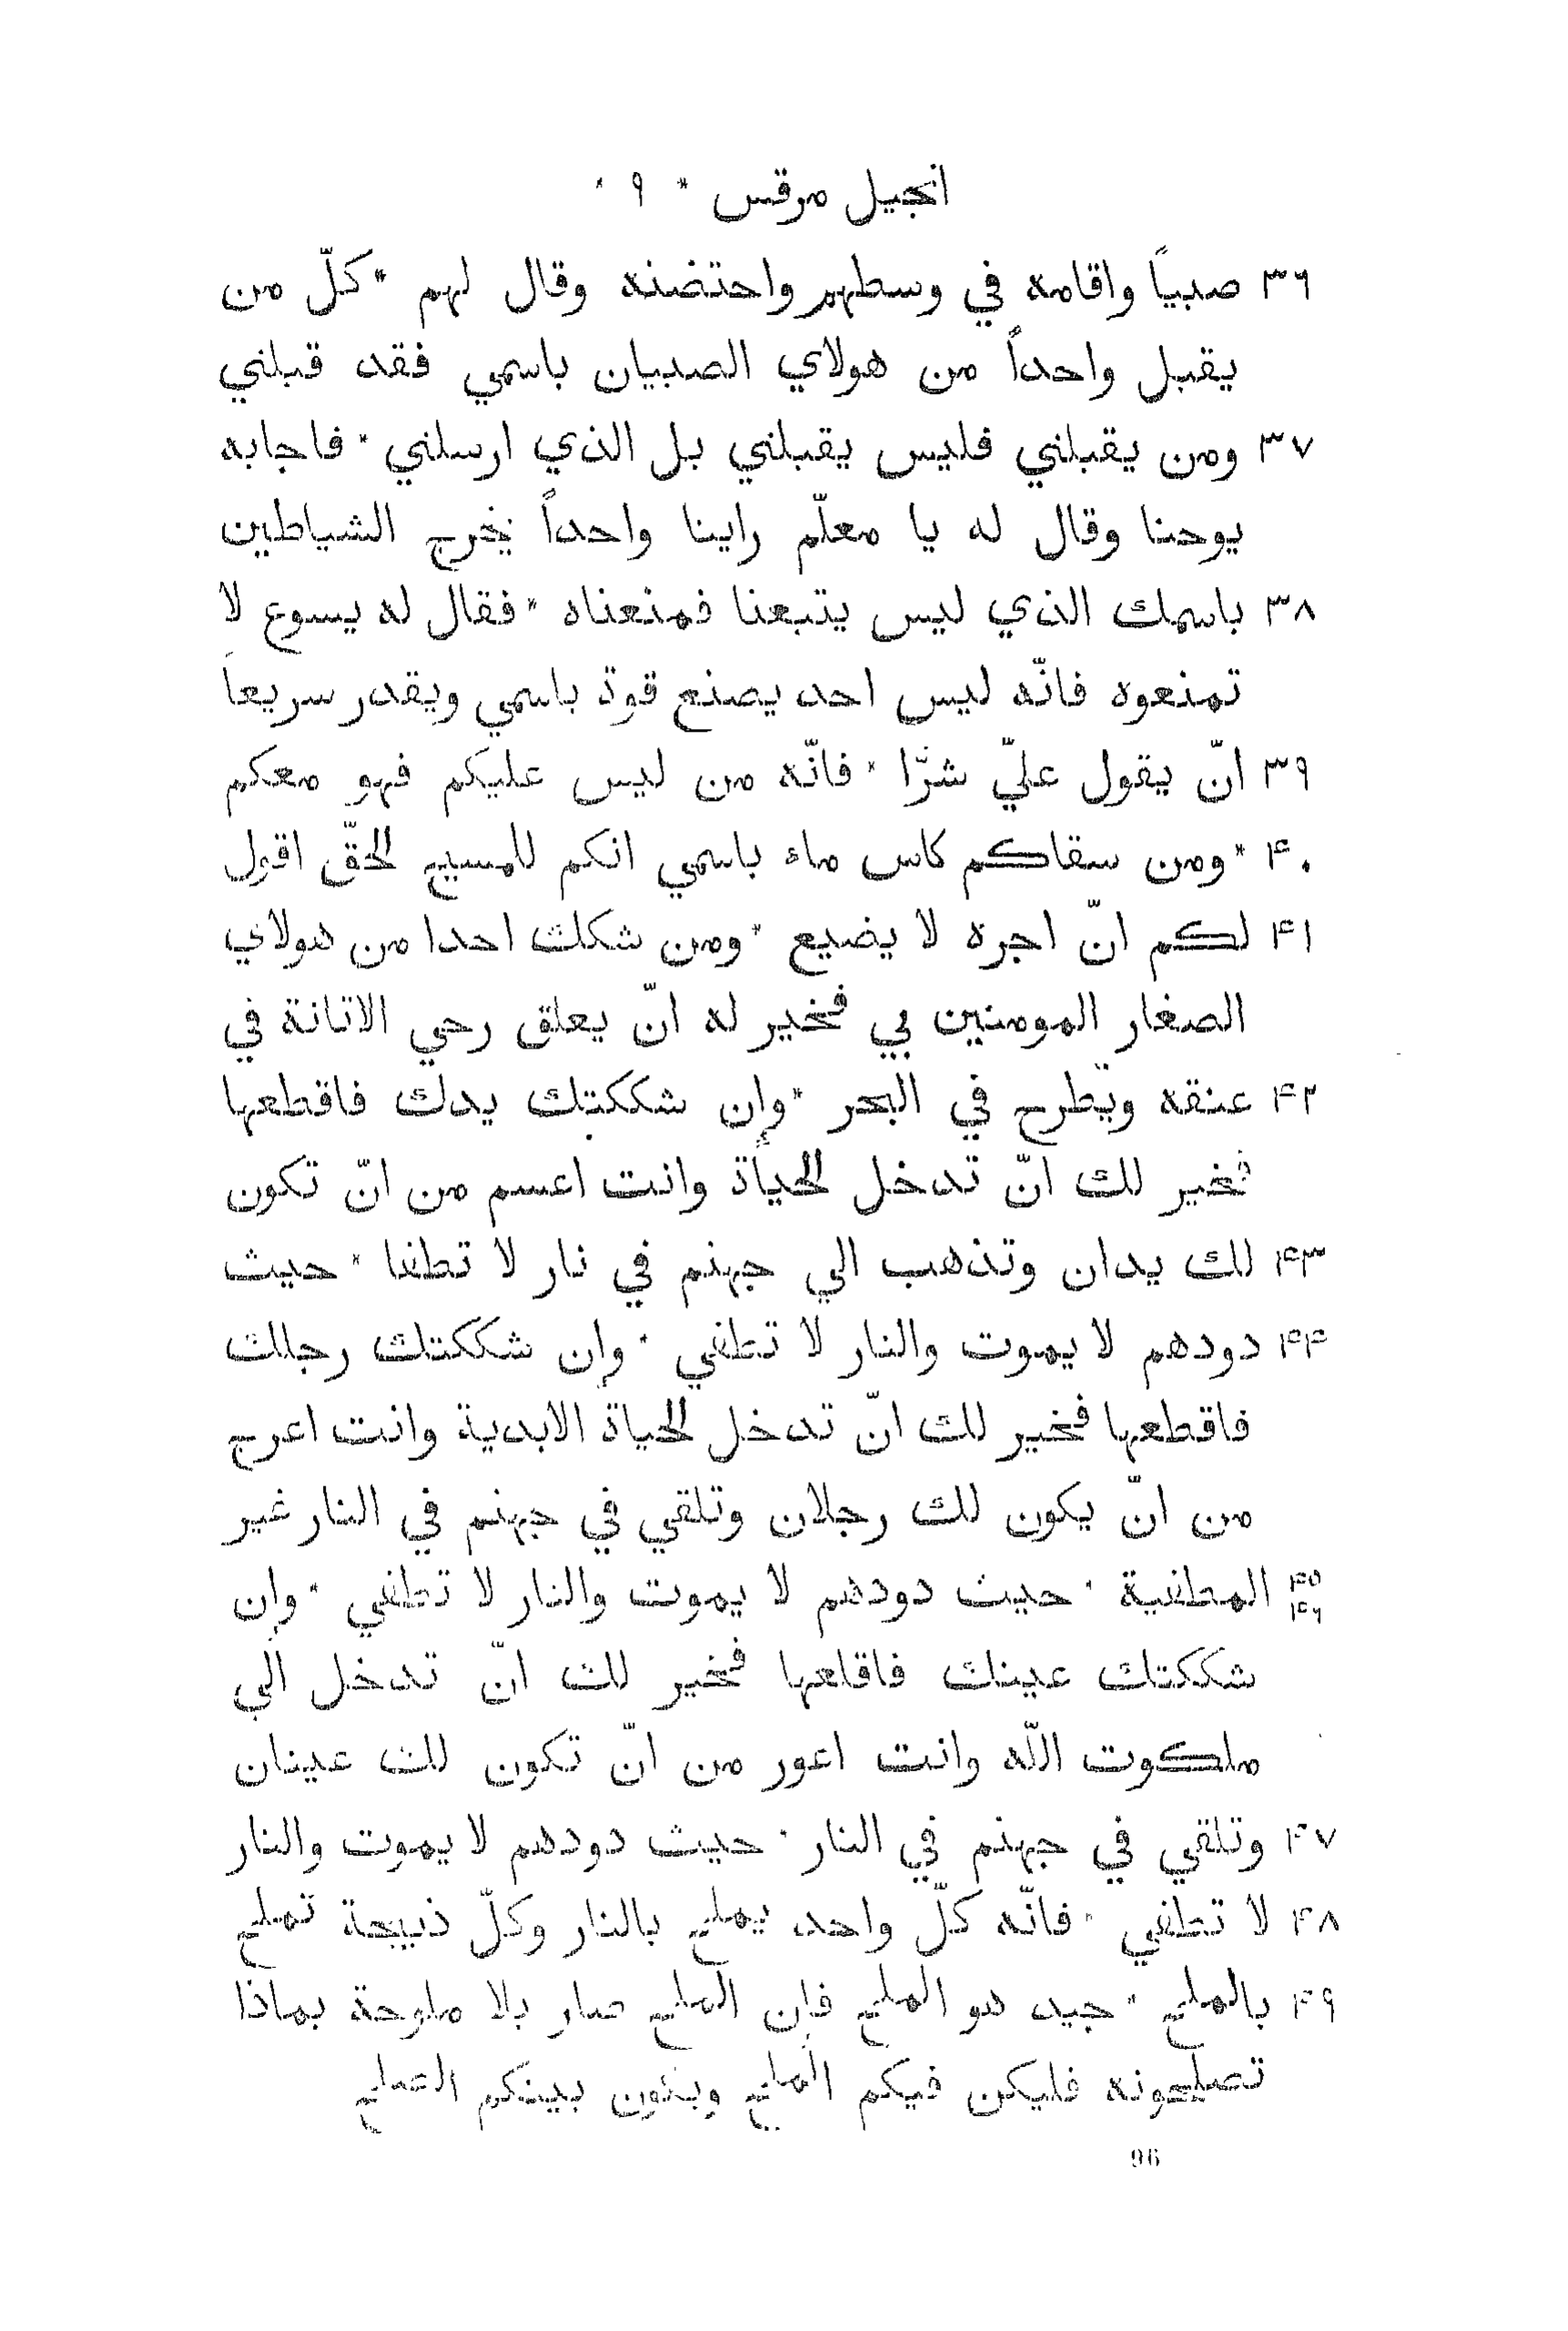 انجيل مرقس * ٩ *
٣٦ صبياً واقامه في وسطهم واحتضنه وقال لهم * كلّ من
يقبل واحداً من هولاي الصبيان باسمي فقد قبلني
٣٧ ومن يقبلني فليس يقبلني بل الذي ارسلني * فاجابه
يوحنا وقال له يا معلّم راينا واحداً يخرج الشياطين
٣٨ باسمك الذي ليس يتبعنا فمنعناه * فقال له يسوع لا
تمنعوه فانّه ليس احد يصنع قوة باسمي ويقدر سريعاً
٣٩ انّ يقول عليّ شرًّا * فانّه من ليس عليكم فهو معكم
۴٠ * ومن سقاكم كاس ماء باسمي انكم للمسيح الحقّ اقول
۴١ لكم انّ اجره لا يضيع * ومن شكك احدا من هولاي
الصغار المومنين بي فخير له انّ يعلق رحي الاتانة في
۴٢ عنقه ويطرح في البحر * وإن شككتك يدك فاقطعها
فخير لك انّ تدخل الحياة وانت اعسم من انّ تكون
۴٣ لك يدان وتذهب الي جهنم في نار لا تطفا * حيث
۴۴ دودهم لا يموت والنار لا تطفي * وإن شككتك رجلك
فاقطعها فخير لك انّ تدخل الحياة الابدية وانت اعرج
من انّ يكون لك رجلان وتلقي في جهنم في النار غير
۴٥ ۴٦ المطفية * حيث دودهم لا يموت والنار لا تطفي * وإن
شككتك عينك فاقلعها فخير لك انّ تدخل الي
ملكوت اللّه وانت اعور من انّ تكون لك عينان
۴٧ وتلقي في جهنم في النار * حيث دودهم لا يموت والنار
۴٨ لا تطفي * فانّه كلّ واحد يملح بالنار وكلّ ذبيحة تملح
۴٩ بالملح * جيد هو الملح فإن الملح صار بلا ملوحة بماذا
تصلحونه فليكن فيكم الملح ويكون بينكم الصلح
96